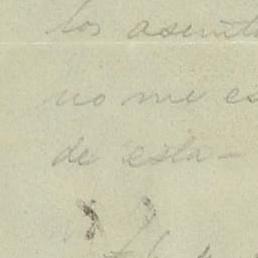 los asunt
no me es
de esta-